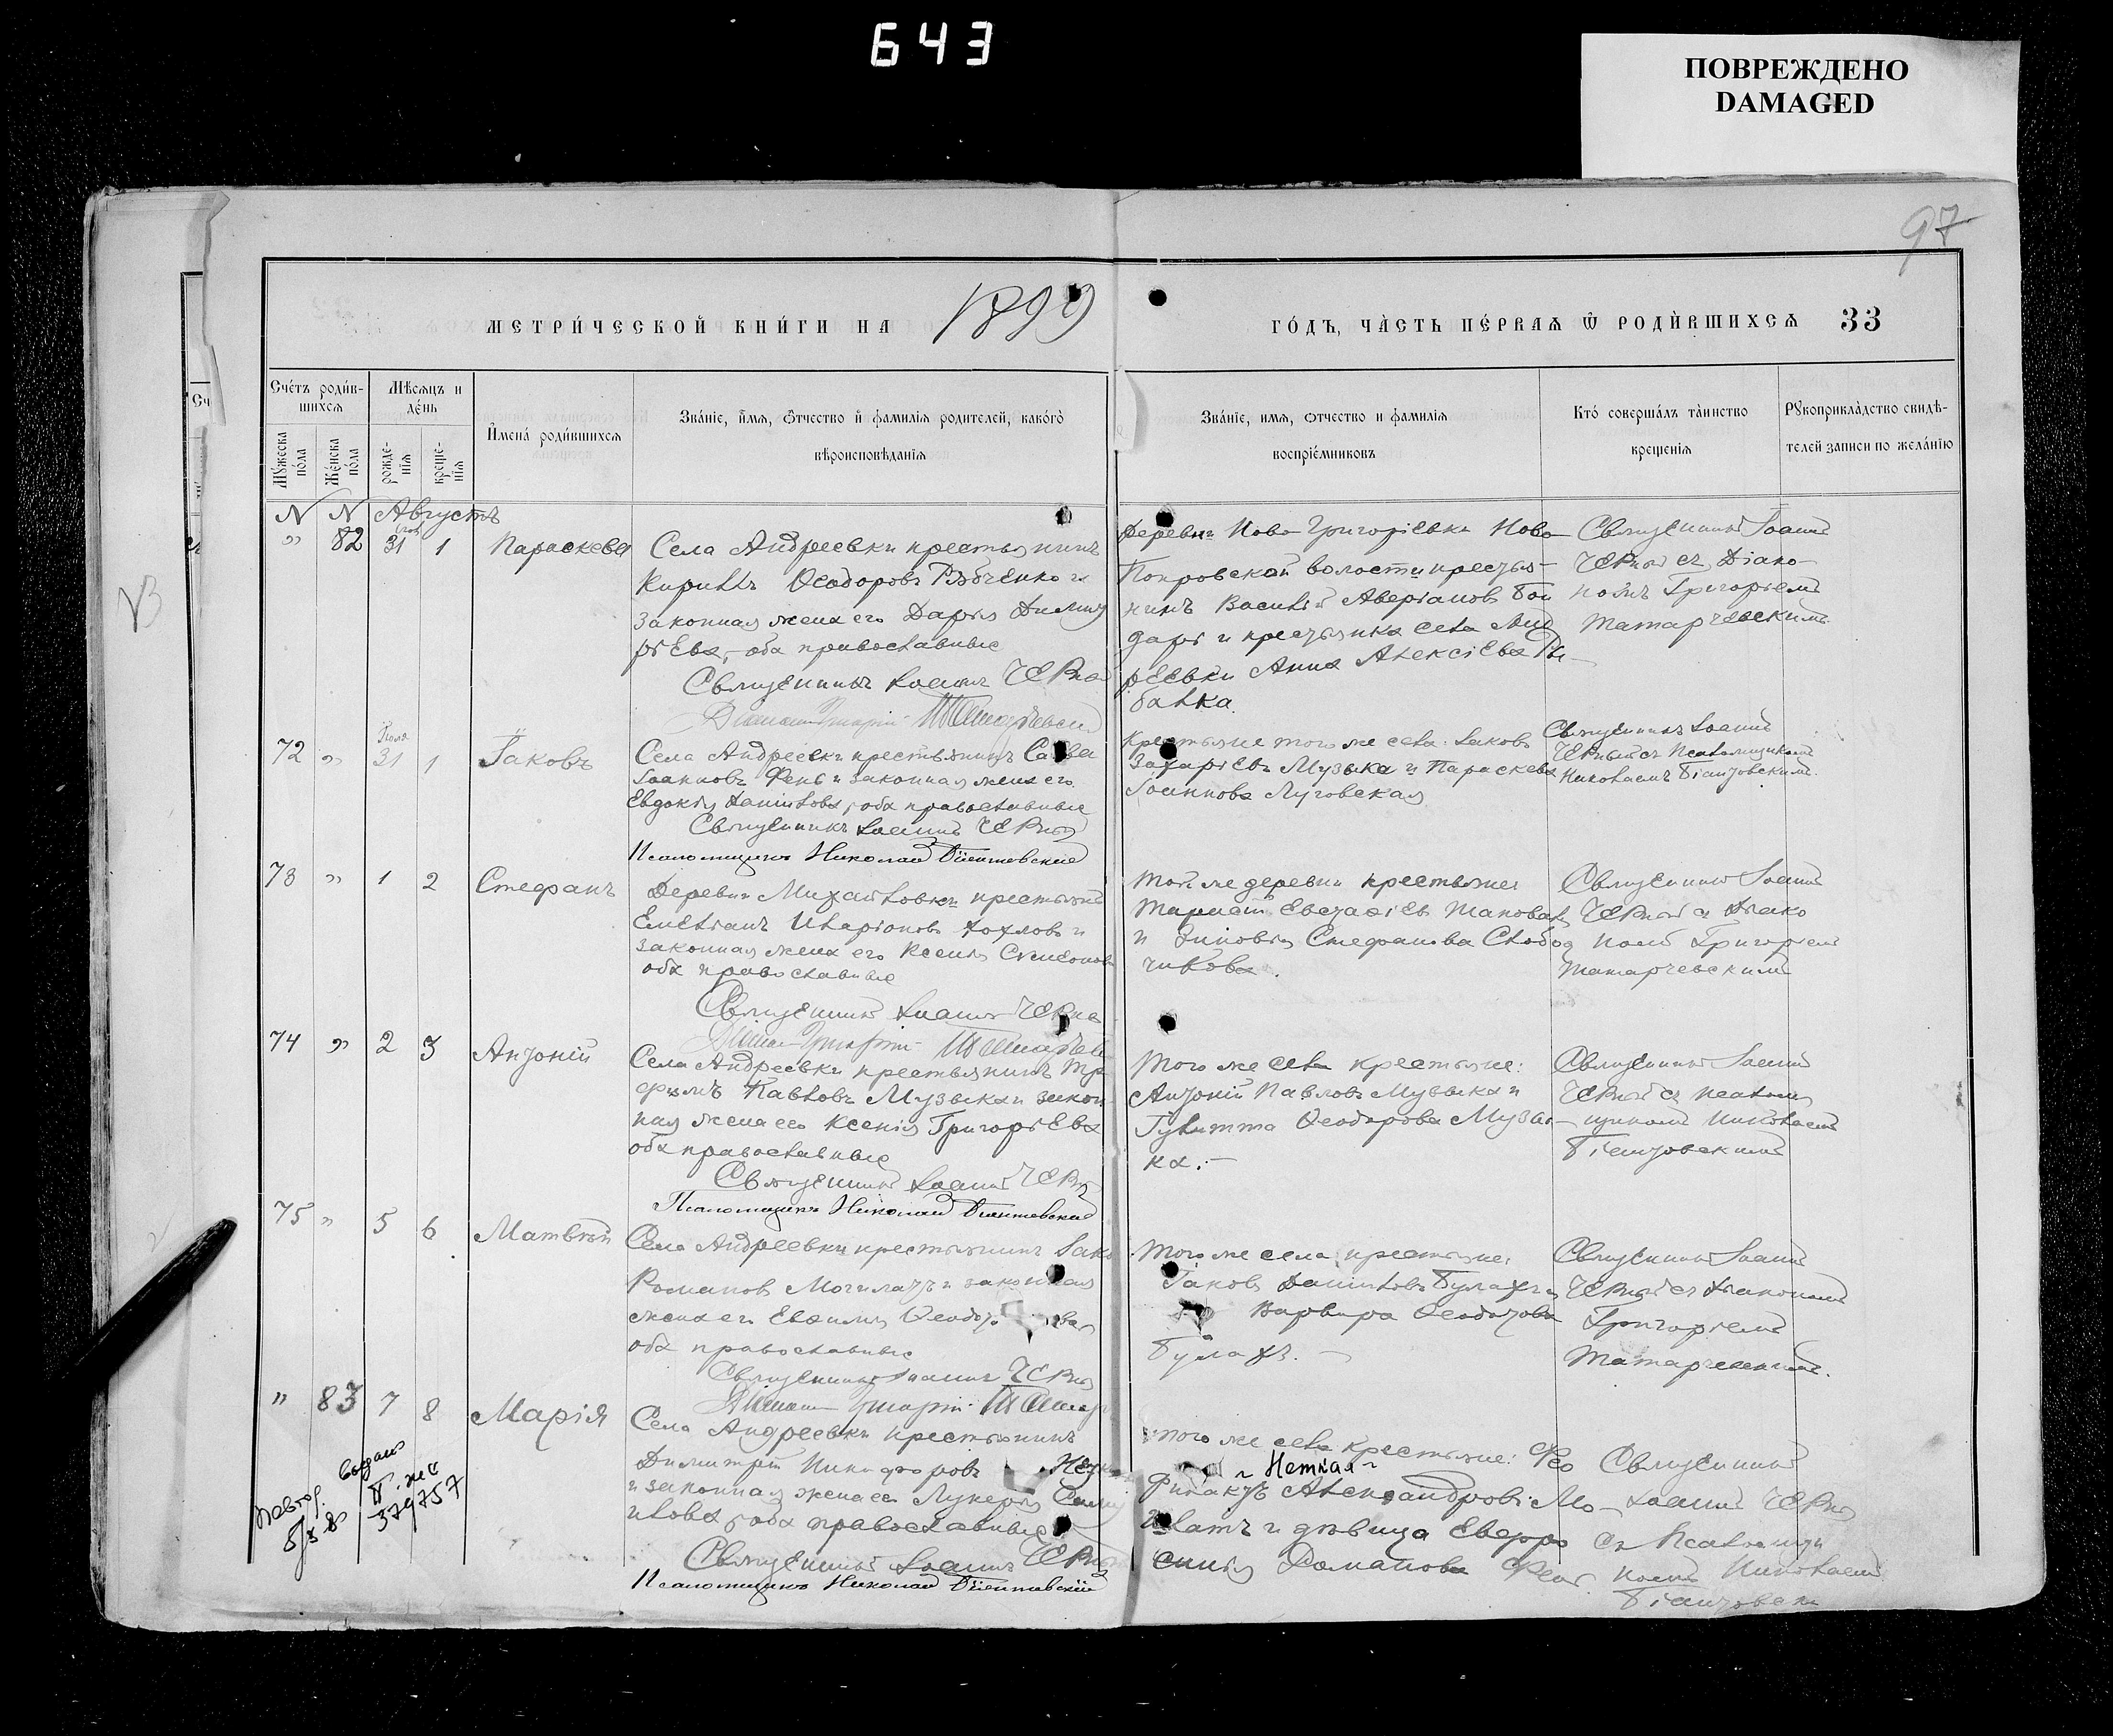 643
ПОВРЕЖДЕНО
DAMAGED
97
МЕТРИ́ЧЕСКОЙ КНИ́ГИ НА 1899 ГО́ДЪ, ЧА́СТЬ ПЕ́РВАѦ Ѿ РОДИ́ВШИХСѦ 33
Сче́тъ роди́в-
шихсѧ
Мѣ́сѧцъ и
де́нь
Мꙋ́жеска
по́ла
Же́нска
по́ла
рожде́-
нїѧ
креще́-
нїѧ
И҆мена́ роди́вшихсѧ
Зва́нїе, и҆́мѧ, ѻ҆́тчество и҆ фамилїѧ родителей, како́гѡ
вѣроисповѣ́данїѧ
Зва́нїе, имѧ, ѻтчество и фамилїѧ
воспрїе́мниковъ
Кто́ соверша́лъ та́инство
крещенїѧ
Рꙋкоприкла́дство свидѣ́-
телей записи по жела́нїю
N N Августъ
" 82 31 1 Параскева
Села Андреевки крестьянинъ
Кириллъ Ѳеодоровъ Рябченко и
законная жена его Дарья Димит
ріева, оба православные
Священникъ Іоаннъ Черный
Деревни Ново-Григоріевки Ново-
Покровской волости крестья-
нинъ Василій Аверіановъ Бон
дарь и крестьянка села Анд
реевки Анна Алексіева Ры-
балка.
Священникъ Іоаннъ
Черный съ Діако-
номъ Григоріемъ
Татарчевскимъ
72 " 31 1 Іаковъ
Села Андреевки крестьянинъ Савва
Іоанновъ Фень и законная жена его
Евдокія Даніилова, оба православные
Священникъ Іоаннъ Черный
Псаломщикъ Николай Біентовскій
Крестьяне того же села: Іаковъ
Захаріевъ Музыка и Параскева
Іоаннова Луговская
Священникъ Іоаннъ
Черный съ Псаломщикомъ
Николаемъ Біентовскимъ.
73 " 1 2 Стефанъ
Деревни Михайловки крестьянинъ
Емеліанъ Иларіоновъ Хохловъ и
законная жена его Ксенія Симеонова
оба православные
Священникъ Іоаннъ Черный
Той же деревни крестьяне:
и Зиновія Стефанова Слобод
чикова.
Священникъ Іоаннъ
Черный съ Діако
номъ Григоріемъ
Татарчевскимъ
74 " 2 3 Антоній
Села Андреевки крестьянинъ Тро
фимъ Павловъ Музыка и закон
ная жена его Ксенія Григоріева
оба православные
Священникъ Іоаннъ Черный
Псаломщикъ Николай Біентовскій
Того же села крестьяне:
Антоній Павловъ Музыка и
Іулитта Ѳеодорова Музы-
ка.-
Священникъ Іоаннъ
Черный съ псалом
щикомъ Николаемъ
Біентовскимъ
75 " 5 6 Матвѣй
Села Андреевки крестьянинъ Іако
Романовъ и законная
жена его Евфимія Ѳеодо
оба православные
Священникъ Іоаннъ Черный
Того же села крестьяне:
Іаковъ Даніиловъ Булахъ и
Варвара Ѳеодорова
Булахъ.-
Священникъ Іоаннъ
Черный съ Діакономъ
Григоріемъ
Татарчевскимъ.
" 83 7 8 Марія
Села Андреевки крестьянинъ
Димитрій Никифоровъ
и законная жена его Лукерья
оба православные
Священникъ Іоаннъ Черный
Псаломщикъ Николай Біентовскій
Того же села крестьяне: Фео
Неткал
филактъ Александровъ Мо-
и дѣвица Евфро
синія Романова
Священникъ
Іоаннъ Черный
съ Псаломщи
комъ Николаемъ
Біентовски
выдано
379757